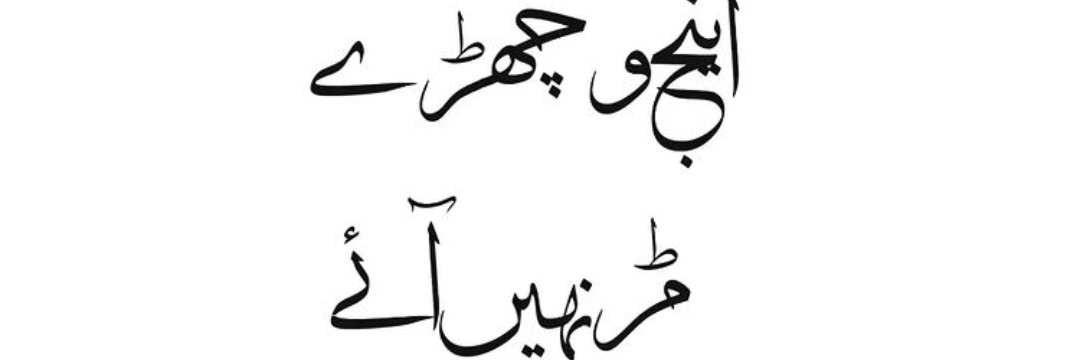 اینج وچھڑے
مڑ نہیں آئے